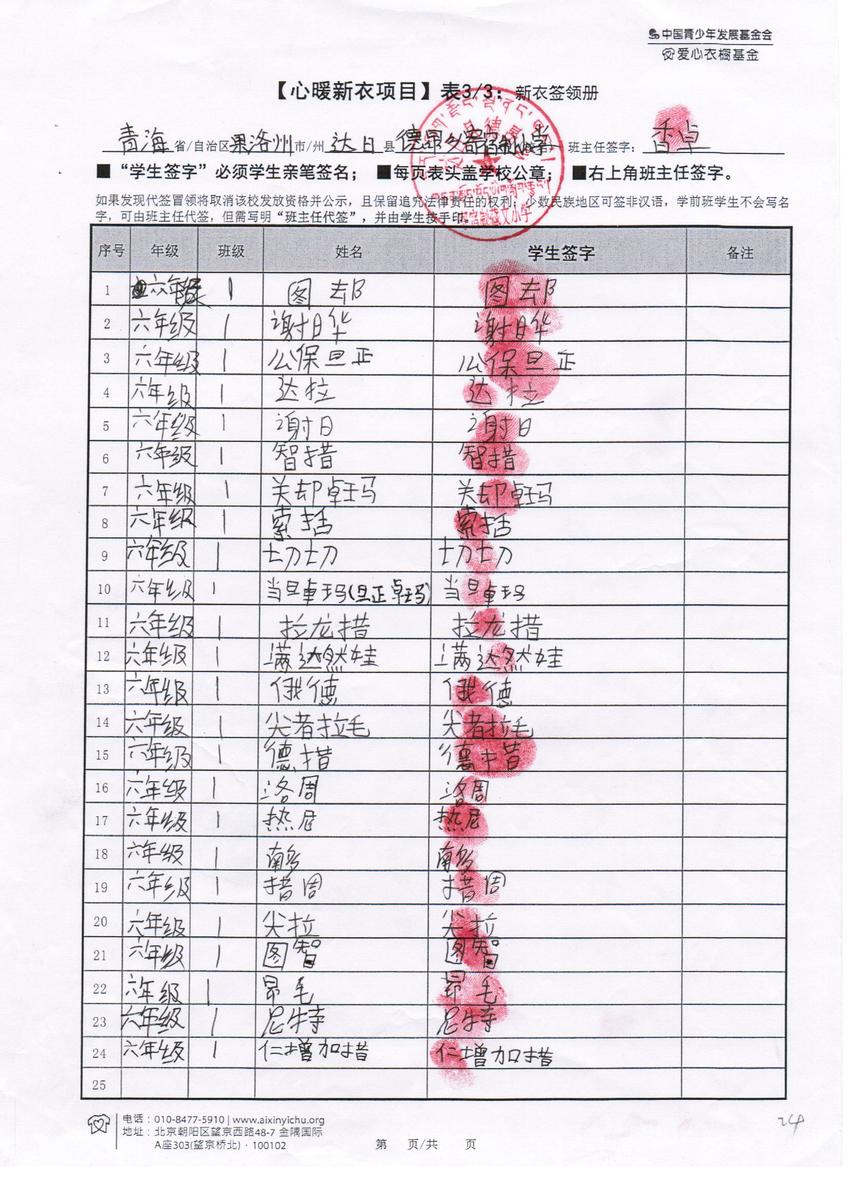 中国青少年发展基金会
爱心衣橱基金
【心暖新衣项目】表3/3：新衣签领册
青海省/自治区果洛州市/州达日县德昂乡寄宿制小学 班主任签字：香卓
■“学生签字”必须学生亲笔签名；■每页表头盖学校公章；■右上角班主任签字。
如果发现代签冒领将取消该校发放资格并公示，且保留追究法律责任的权利；少数民族地区可签非汉语，学前班学生不会写名
字，可由班主任代签，但需写明“班主任代签”，并由学生按手印。
序号 年级 班级 姓名 学生签字 备注
1 六年级 1 图却 图却
2 六年级 1 谢日华 谢日华
3 六年级 1 公保旦正 公保旦正
4 六年级 1 达拉 达拉
5 六年级 1 谢日 谢日
6 六年级 1 智措 智措
7 六年级 1 关却卓玛 关却卓玛
8 六年级 1 索括 索括
9 六年级 1 切切 切切
10 六年级 1 当旦卓玛(旦正卓玛) 当旦卓玛
11 六年级 1 拉龙措 拉龙措
12 六年级 1 满达然娃 满达然娃
13 六年级 1 俄德 俄德
14 六年级 1 尖者拉毛 尖者拉毛
15 六年级 1 德措 德措
16 六年级 1 洛周 洛周
17 六年级 1 热尼 热尼
18 六年级 1 南多 南多
19 六年级 1 措周 措周
20 六年级 1 尖拉 尖拉
21 六年级 1 图智 图智
22 六年级 1 昂毛 昂毛
23 六年级 1 尼特 尼特
24 六年级 1 仁增加措 仁增加措
25
电话：010-8477-5910 | www.aixinyichu.org
地址：北京朝阳区望京西路48-7 金隅国际
A座303(望京桥北)·100102
第 页/共 页
24